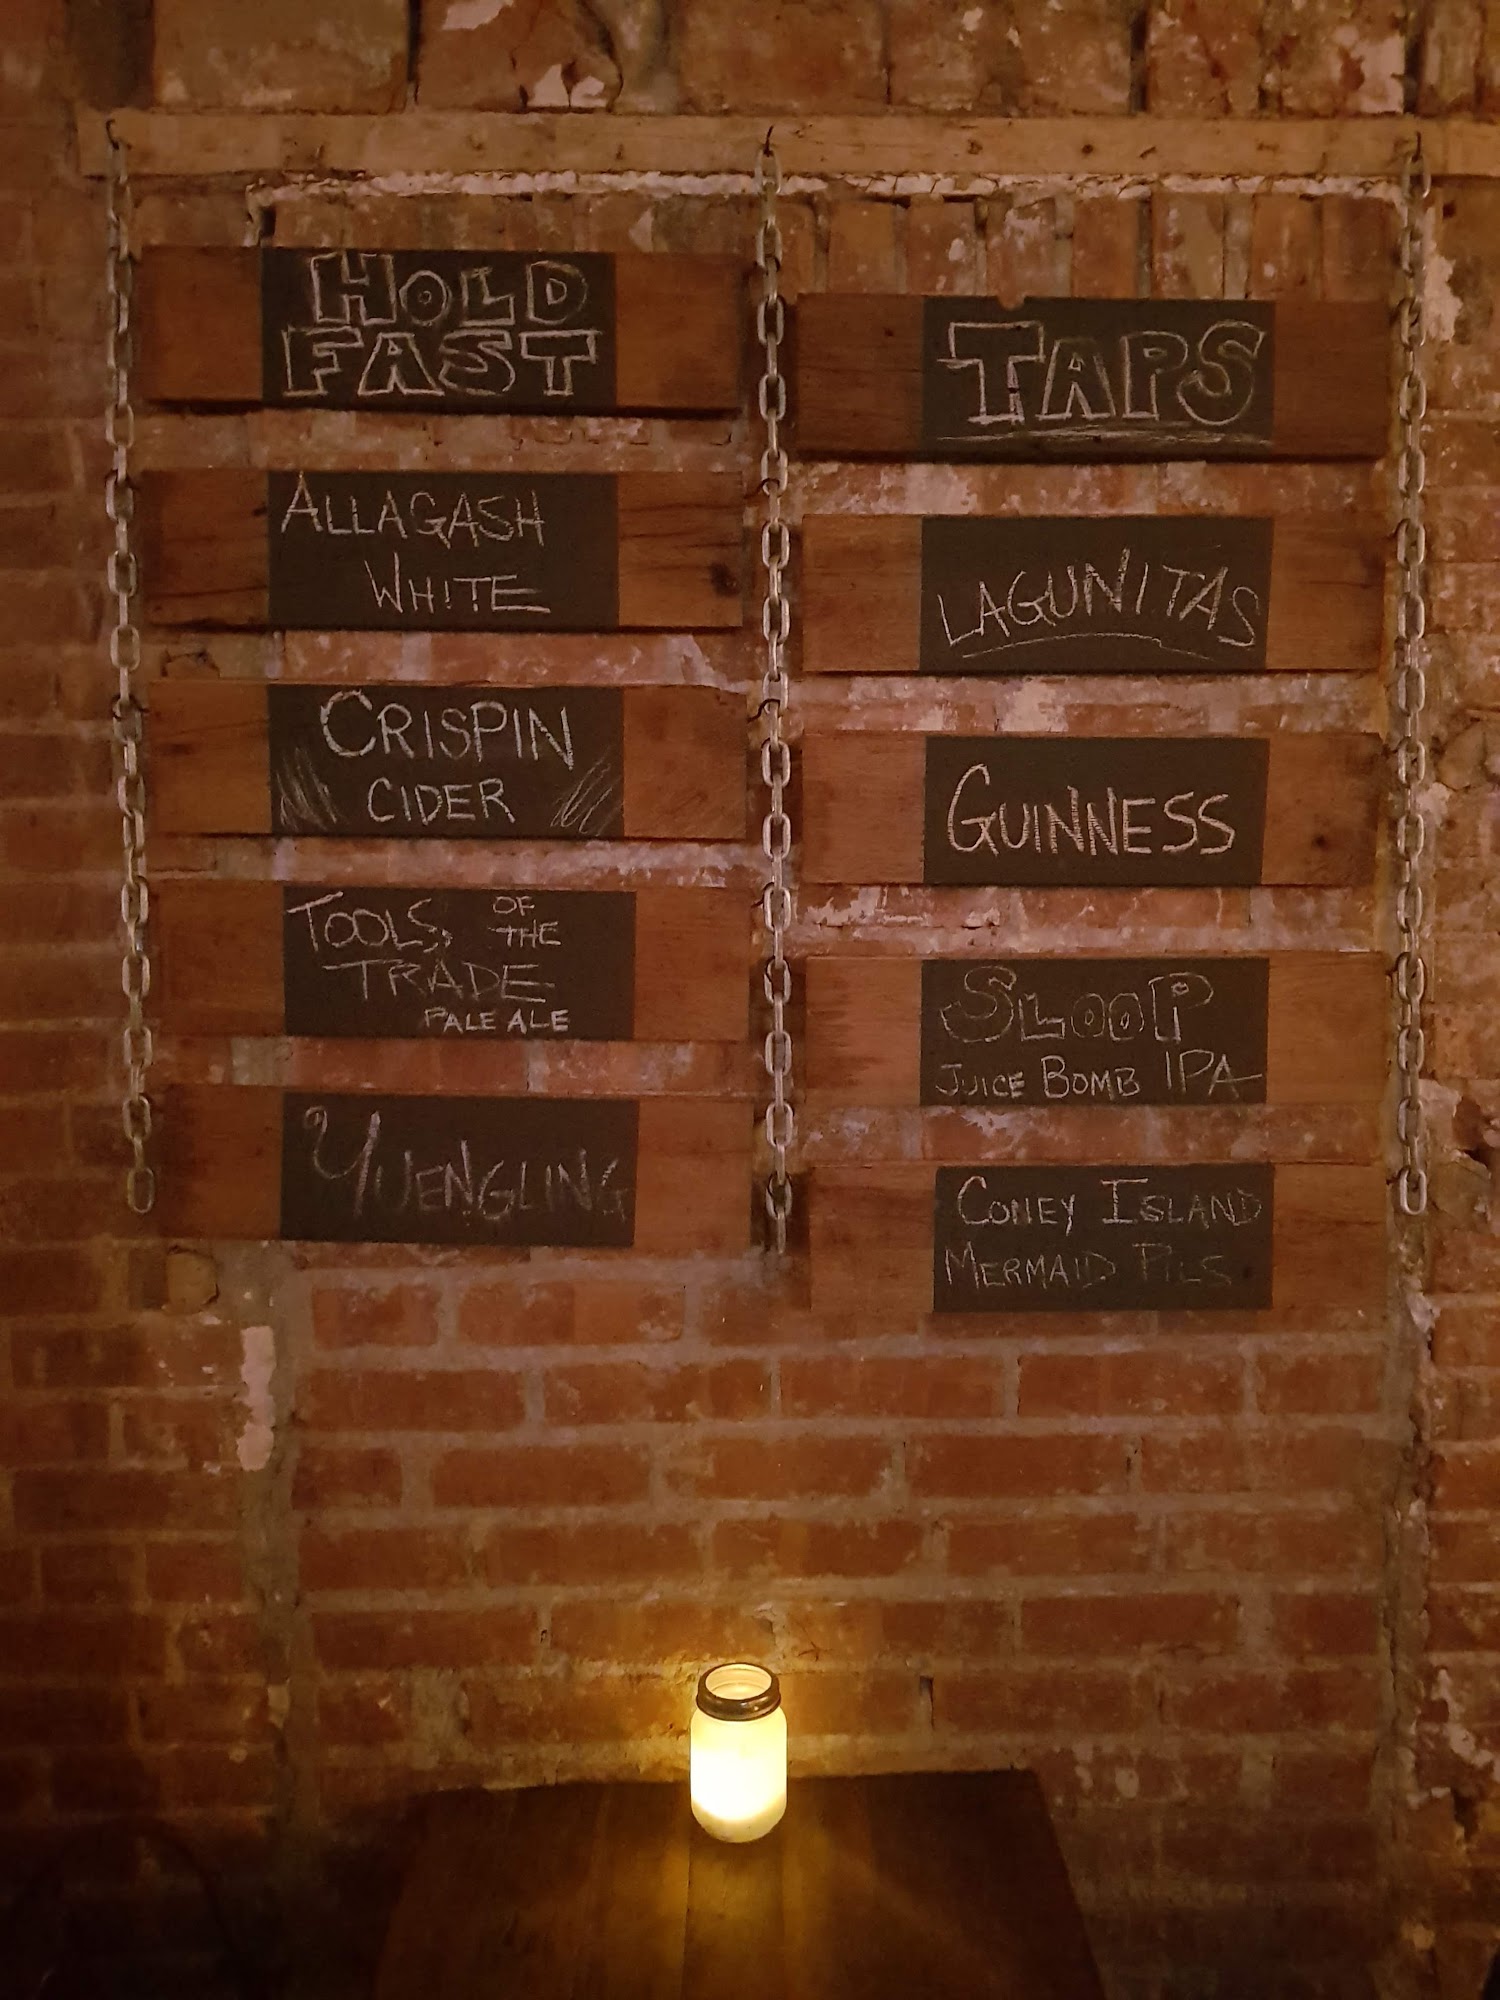 HOLD
FAST
TAPS
ALLAGASH
WHITE
CRISPIN
CIDER
TOOLS OF
THE
TRADE
PALE ALE
YUENGLING
LAGUNITAS
GUINNESS
SLOOP
JUICE BOMB IPA
CONEY ISLAND
MERMAID PILS